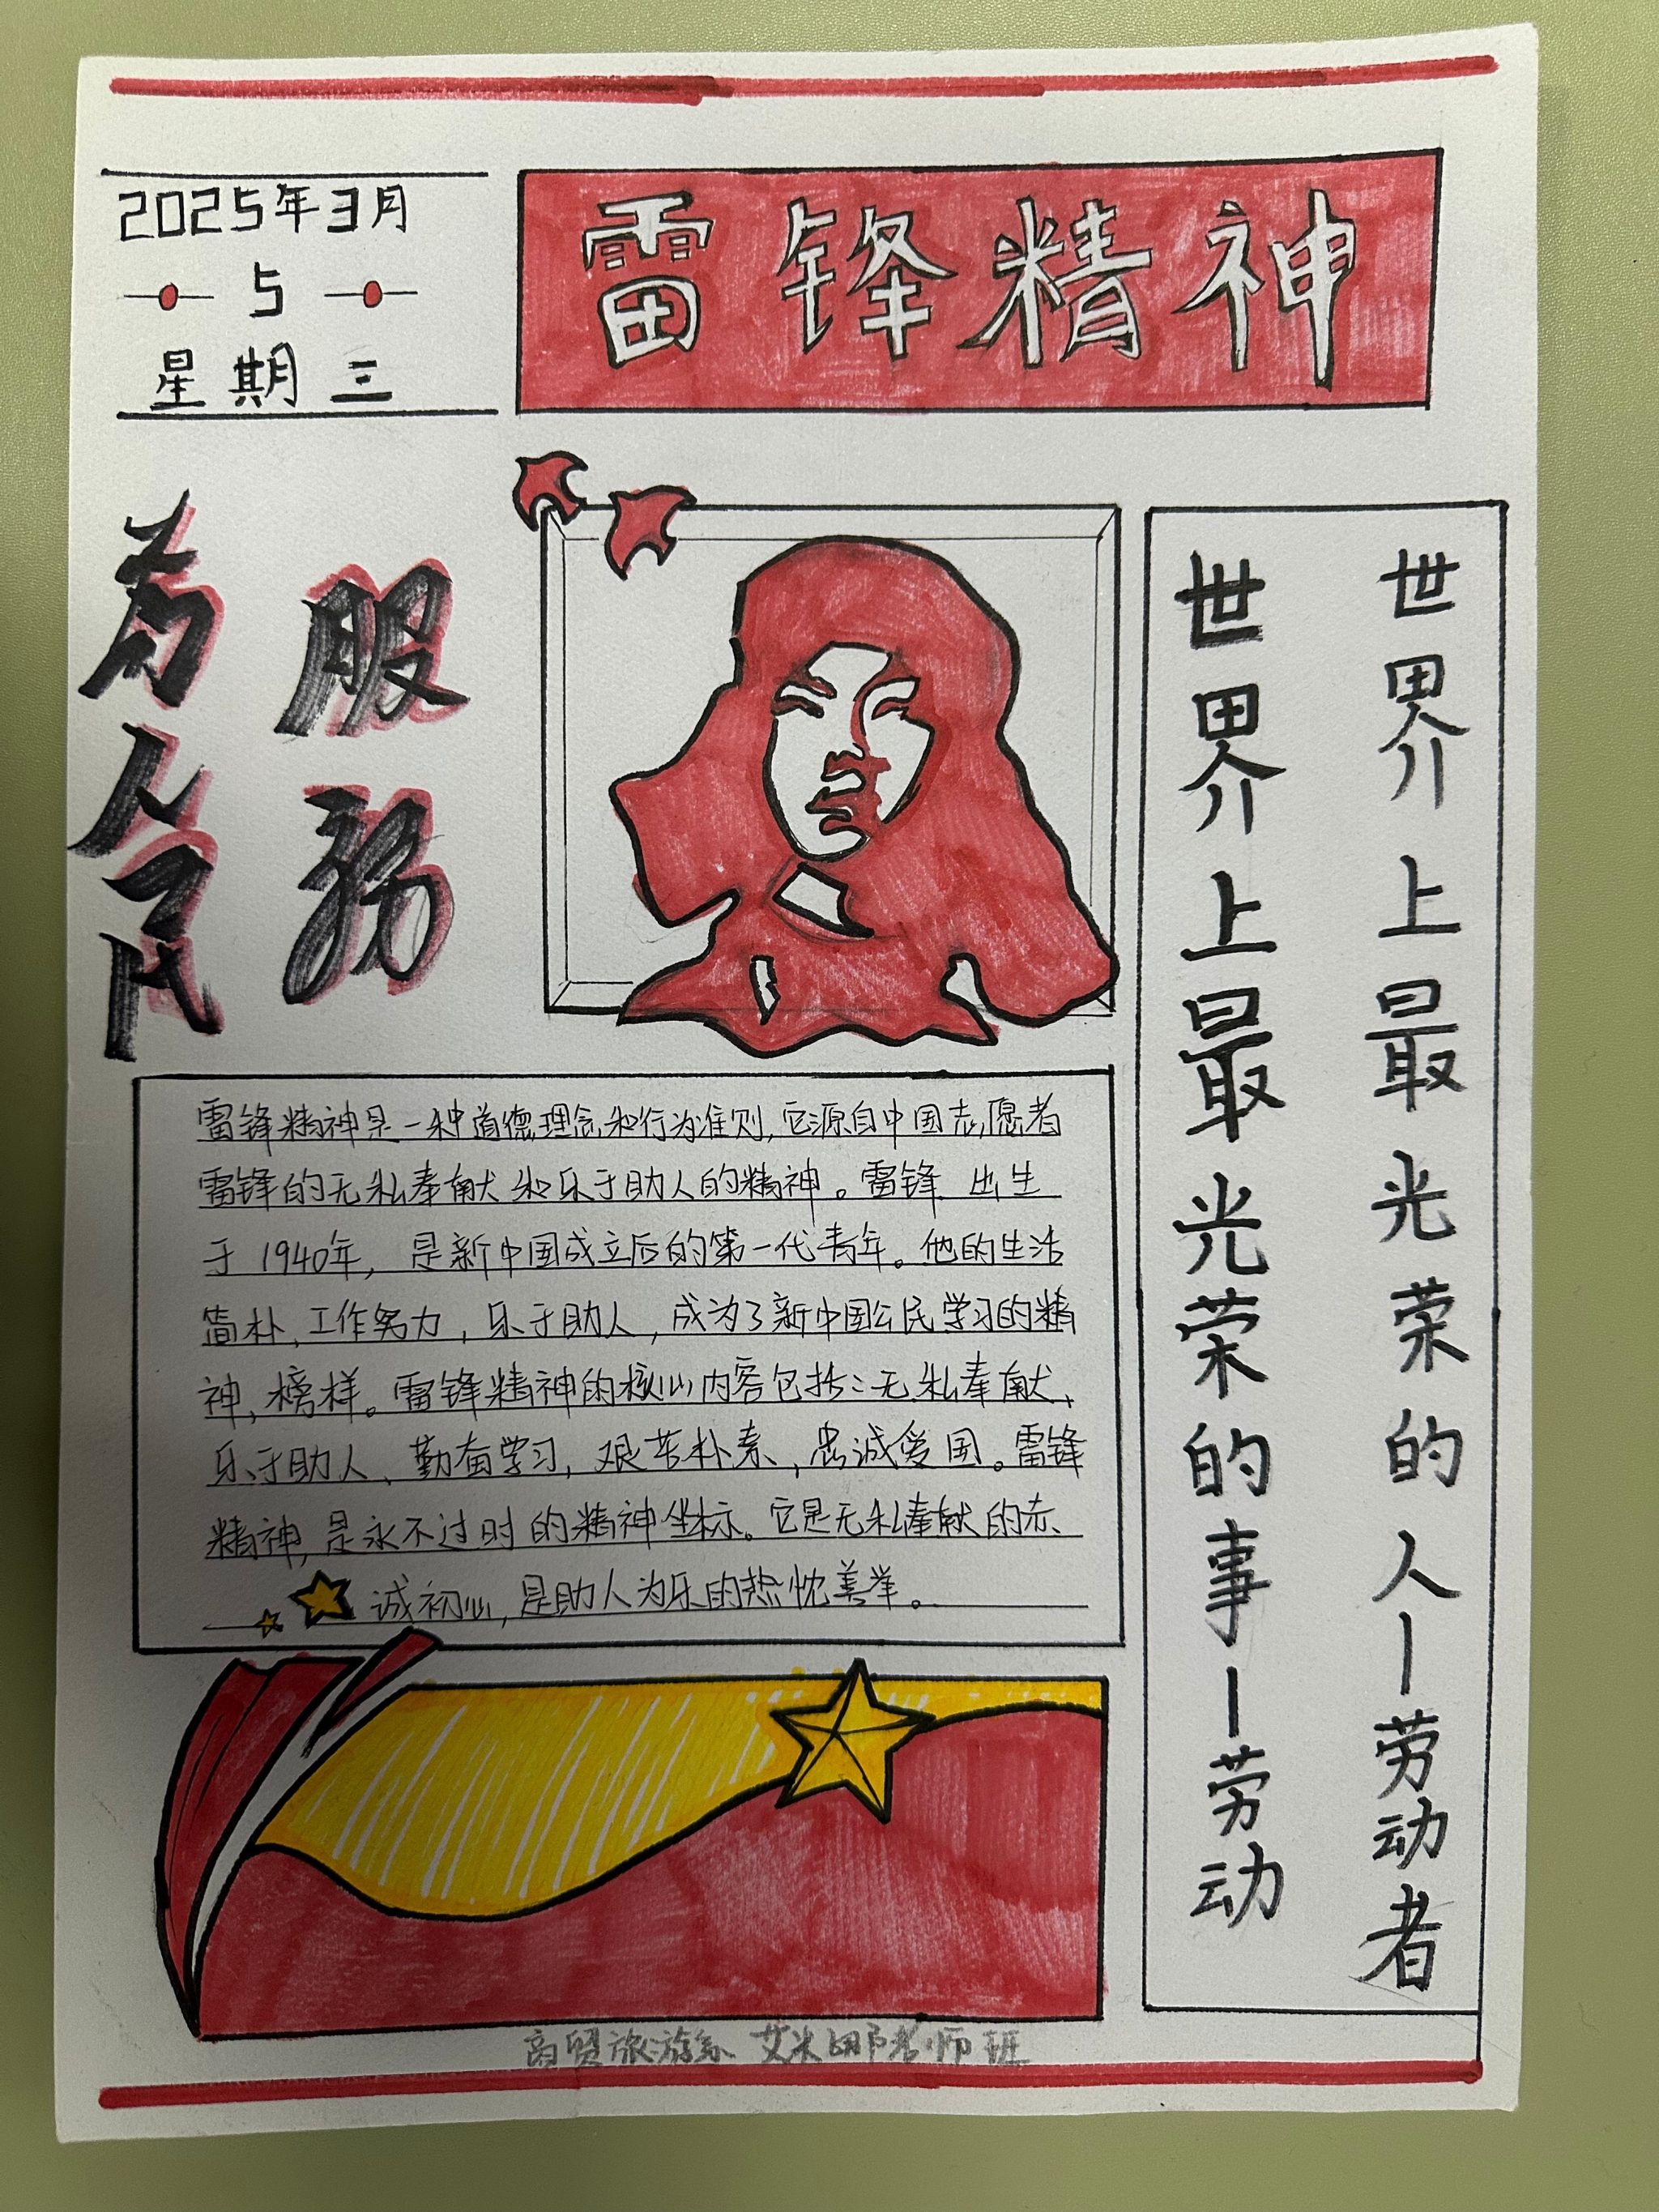 2025年3月
5
星期三
雷锋精神
为人民
服务
世界上最光荣的人—劳动者
世界上最光荣的事—劳动
雷锋精神是一种道德理念和行为准则,它源自中国志愿者
雷锋的无私奉献和乐于助人的精神。雷锋 出生
于 1940年, 是新中国成立后的第一代青年。他的生活
简朴,工作努力,乐于助人,成为了新中国公民学习的精
神,榜样。雷锋精神的核心内容包括:无私奉献、
乐于助人、勤奋学习,艰苦朴素,忠诚爱国。雷锋
精神,是永不过时的精神坐标。它是无私奉献的赤、
诚初心,是助人为乐的热忱美举。
商贸旅游系 艾米娜老师班